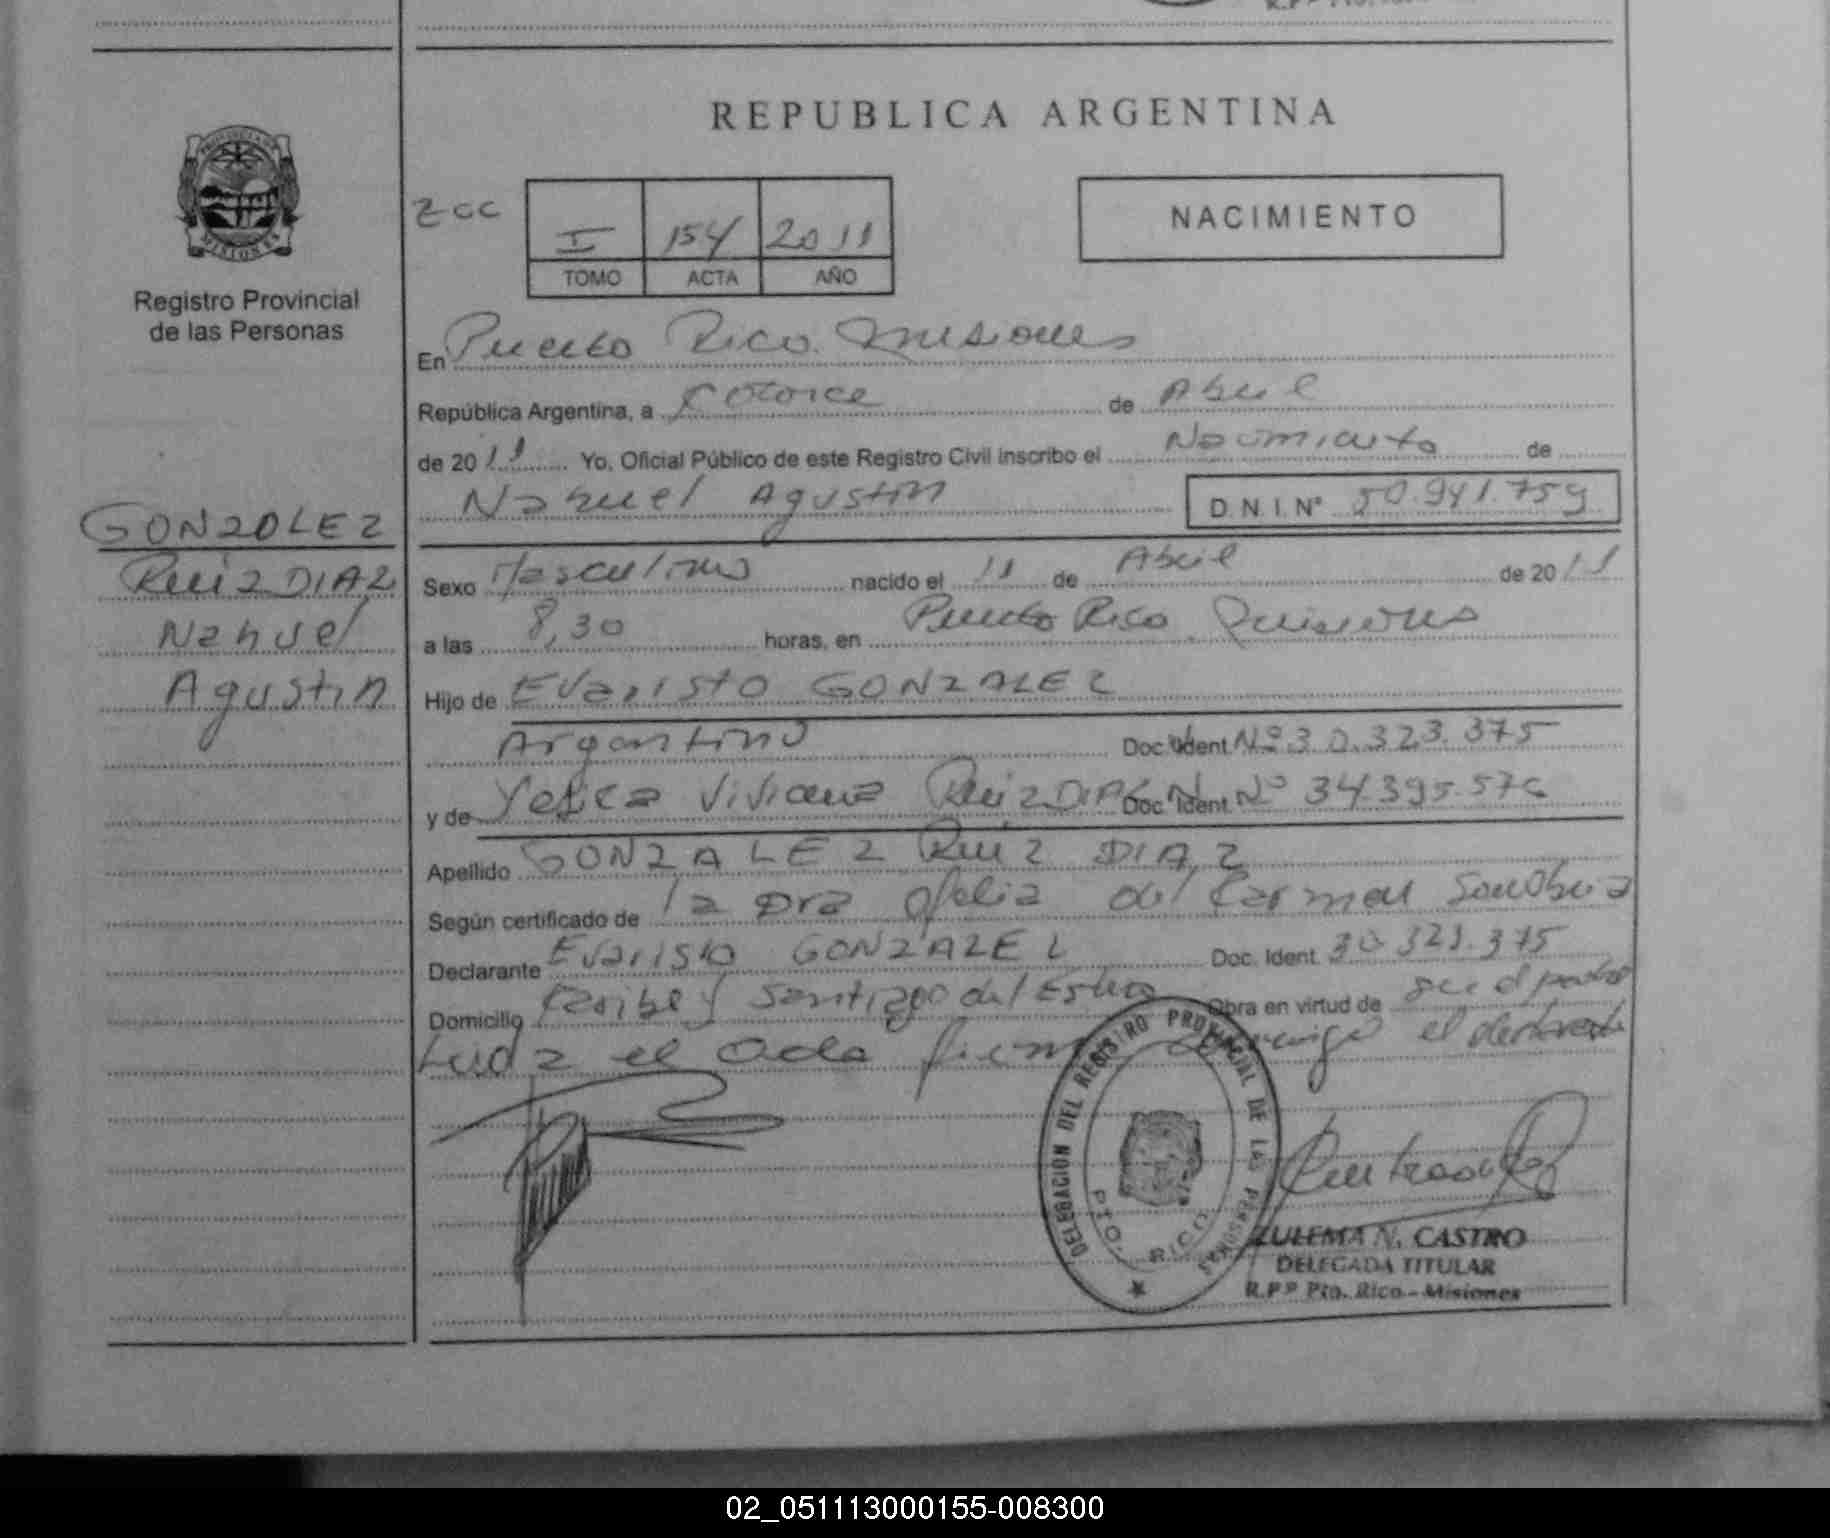 REPUBLICA ARGENTINA
PROVINCIA DE MISIONES
Registro Provincial
de las Personas
I 154 2011
TOMO ACTA AÑO
NACIMIENTO
En Puerto Rico Misiones
República Argentina, a catorce de Abril
de 2011 Yo, Oficial Público de este Registro Civil inscribo el Nacimiento de
Nahuel Agustin D.N.I.Nº 50.941.759
GONZALEZ
Ruiz DIAZ
Nahuel
Agustin
Sexo Masculino nacido el 11 de Abril de 2011
a las 8,30 horas, en Puerto Rico Misiones
Hijo de Evaristo GONZALEZ
Argentino Doc. Ident Nº 30.323.375
y de Yesica Viviana Ruiz DIAZ Doc. Ident. Nº 34.395.576
Apellido GONZALEZ Ruiz DIAZ
Según certificado de la Dra Ofelia del Carmen
Declarante Evaristo GONZALEZ Doc. Ident. 30 323.375
Domicilio Caribe y Santiago del Estero Obra en virtud de ser el padre
Leida el Acta firma conmigo el declarante
DELEGACION DEL REGISTRO PROVINCIAL DE LAS PERSONAS
PTO. RICO
ZULEMA N. CASTRO
DELEGADA TITULAR
R.P.P Pto. Rico - Misiones
02_051113000155-008300